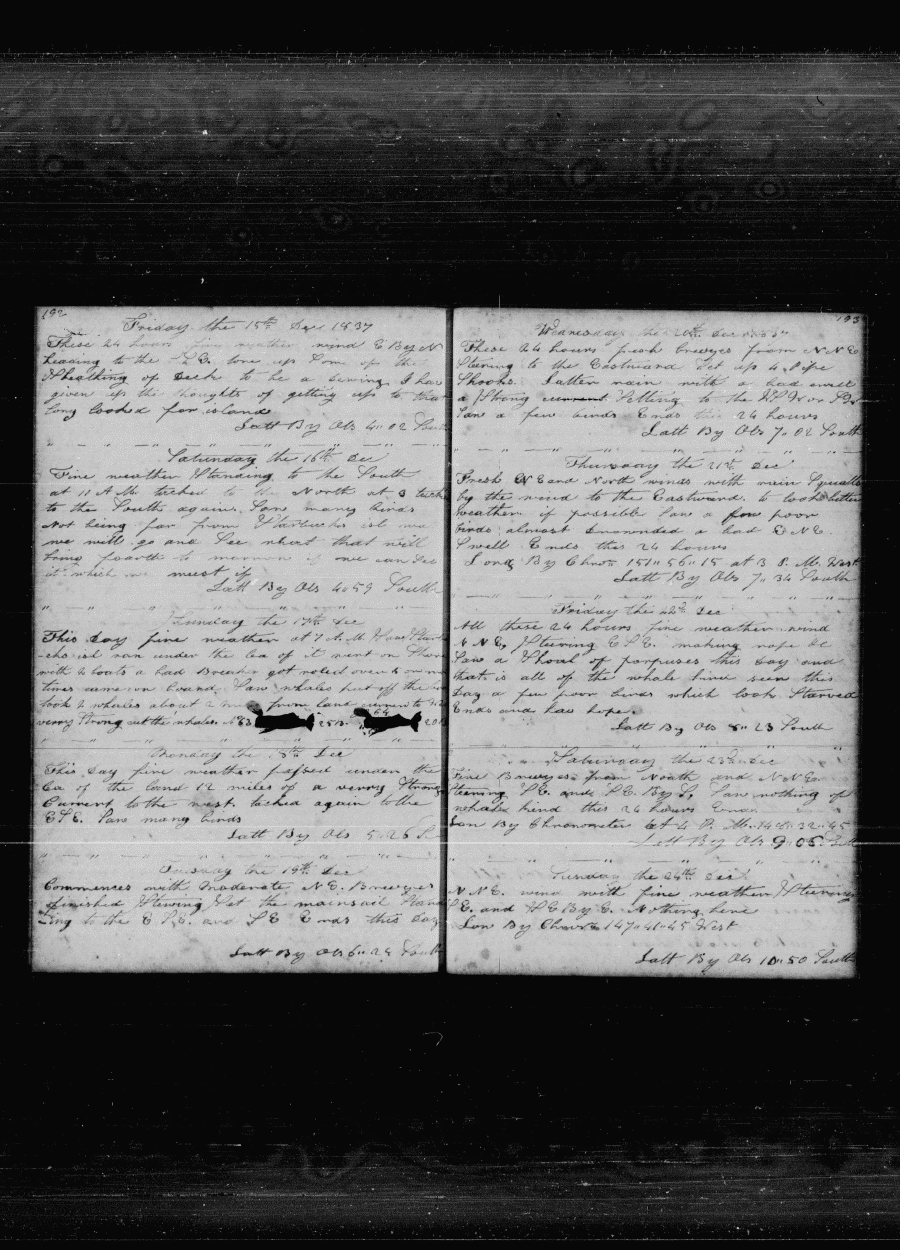 192
Friday the 15th Dec 1837
These 24 hours fine weather wind E By N
heading to the S.E. tore up some of the
Sheathing of Deck to be a Sewing. I have
given up the thoughts of getting up to that
long looked for island
Latt By Obs 4" 02 South
Saturday the 16th Dec
Fine weather Standing to the South
at 11 A M tacked to the North at 3 tackd
to the South again. Saw many birds
Not being far from Starbucks isl
we will go and See what that will
bring foarth to morrow if we can See
it which we must if
Latt By Obs 4"59 South
Sunday the 17th Dec
This day fine weather at 7 A.M. Saw Starbu
-cks isl ran under the Lea of it went on Shore
with 2 boats a bad Breaker got roled over
times came on board. Saw whales put off the
took 2 whales about 2 from land current to
verry Strong cut the whales. No 63 25 B. 64 20 B
Monday the 18th Dec
This day fine weather passed under the
Lea of the land 12 miles of a verry Strong
Current to the west. tacked again to the
E S E. Saw many birds
Latt By Obs 5"26 S
Tuesday the 19th Dec
Commences with moderate N.E. Breezes
finished Stowing Set the mainsail Stand
ing to the E S E. and S E Ends this day
Latt By Obs 6"24 South
193
Wednesday the 20th Dec 1837
These 24 hours fresh breezes from N N E
Stering to the Eastward Set up 4 Pipe
Shooks. Latter rain with a bad swell
a Strong current Setting to the
Saw a few birds Ends this 24 hours
Latt By Obs 7" 02 South
Thursday the 21st Dec
Fresh N E and North winds with rain Squalls
by the wind to the Eastward. to look better
weather if possible Saw a few poor
birds almost drownded a bad E N E.
Swell. Ends this 24 hours
Long By Chron 151"56"15 at 3 P. M. West
Latt By Obs 7" 34 South
Friday the 22d Dec
All these 24 hours fine weather wind
N N E Steering E S E. making rope &c
Saw a Shoal of porpuses this day and
that is all of the whale kind seen this
day a few poor birds which look Starved
Ends and has hope.
Latt By Obs 8" 23 South
Saturday the 23d Dec
Fine Breezes from North and N N E.
Steering S.E. and S E. By S. Saw nothing of
whale kind this 24 hours Ends
Lon By Chronometer at 4 P. M. 148"32"45
Latt By Obs 9"05 South
Sunday the 24th Dec
N N E. wind with fine weather Steering
S E. and S E By E. Nothing here
Lon By Chron 147"41"45 West
Latt By Obs 10"50 South